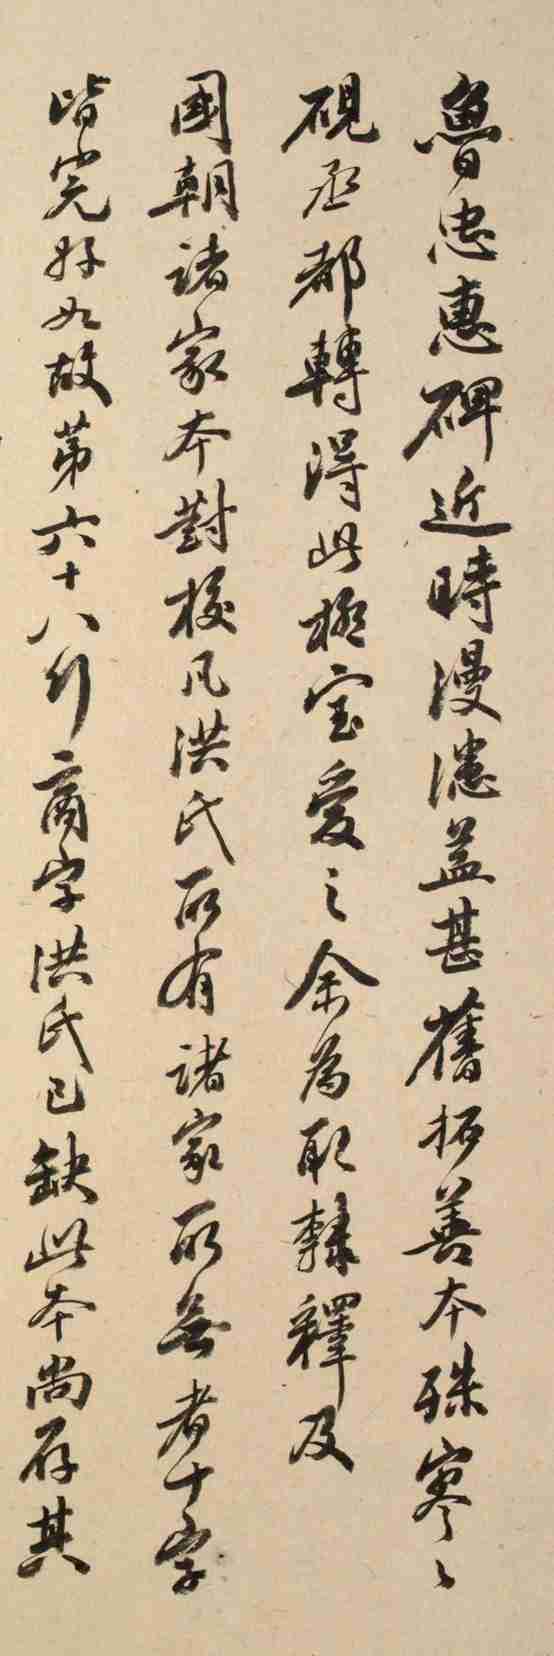 魯忠惠碑近時漫漶益甚舊拓善本殊寥〻
硯丞都轉得此極宝愛之余為取隸釋及
國朝諸家本對校凡洪氏所有諸家所無者十字
皆完好如故第六十八行商字洪氏已缺此本尚存其